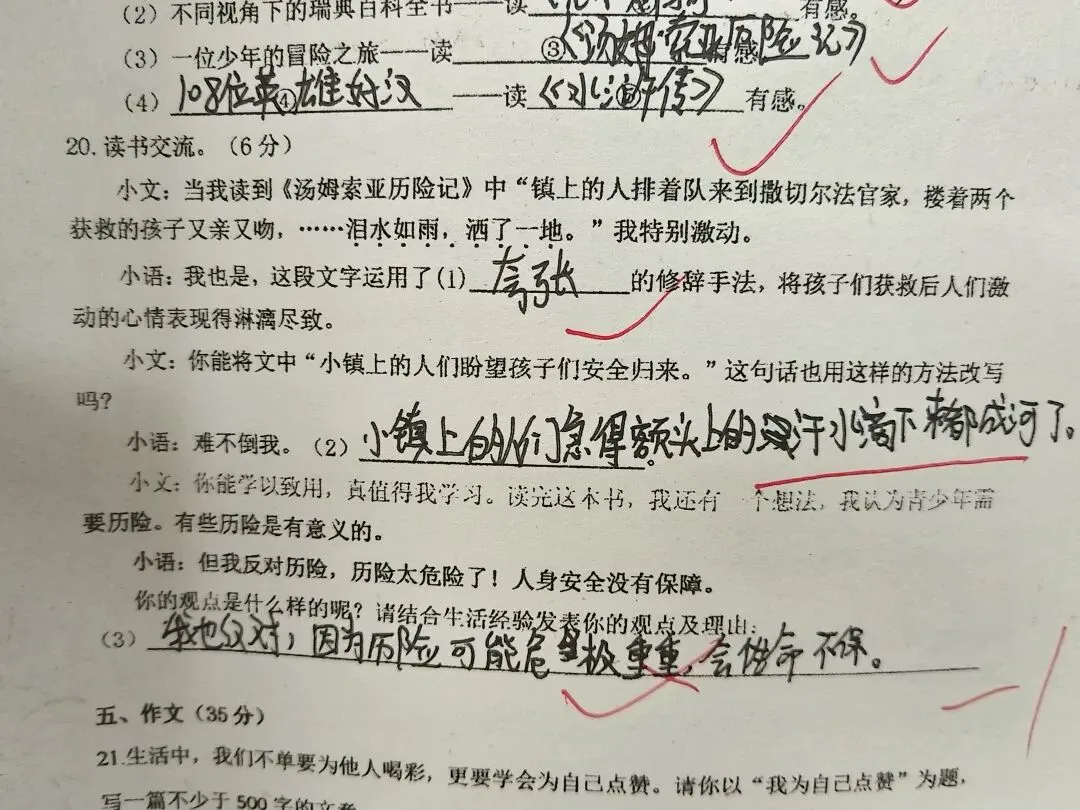 (2) 不同视角下的瑞典百科全书——读 有感。
(3) 一位少年的冒险之旅——读 ③《汤姆·索亚历险记》有感
(4) 108位英④雄好汉 ——读《水浒传》 有感。
20. 读书交流。(6 分)
小文：当我读到《汤姆索亚历险记》中“镇上的人排着队来到撒切尔法官家，搂着两个
获救的孩子又亲又吻，……泪水如雨，洒了一地。”我特别激动。
小语：我也是，这段文字运用了(1) 夸张 的修辞手法，将孩子们获救后人们激
动的心情表现得淋漓尽致。
小文：你能将文中“小镇上的人们盼望孩子们安全归来。”这句话也用这样的方法改写
吗？
小语：难不倒我。(2) 小镇上的人们急得额头上的汗水滴下来都成河了。
小文：你能学以致用，真值得我学习。读完这本书，我还有一个想法，我认为青少年需
要历险。有些历险是有意义的。
小语：但我反对历险，历险太危险了！人身安全没有保障。
你的观点是什么样的呢？请结合生活经验发表你的观点及理由：
(3) 我也反对，因为历险可能危极重重，会性命不保。
五、作文(35 分)
21.生活中，我们不单要为他人喝彩，更要学会为自己点赞。请你以“我为自己点赞”为题，
写一篇不少于 500 字的文章